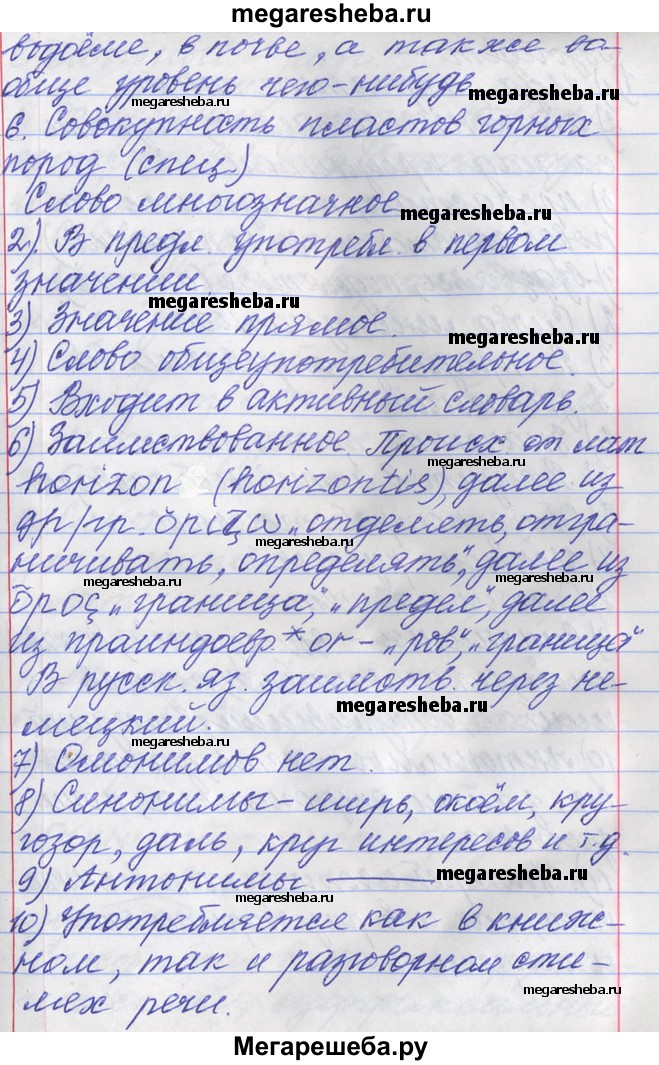 www.megaresheba.ru
водоёме, в почве, а также во-
обще уровень чего-нибудь
megaresheba.ru
megaresheba.ru
6. Совокупность пластов горных
пород (спец)
megaresheba.ru
Слово многозначное
megaresheba.ru
2). В предл. употребл. в первом
значении.
megaresheba.ru
3) Значение прямое.
megaresheba.ru
4) Слово общеупотребительное.
5) Входит в активный словарь.
6) Заимствованное. Происх от лат
megaresheba.ru
horizon (horizontis), далее из
др/гр. ὁρίζω „отделять, отгра-
megaresheba.ru
ничивать, определять", далее из
megaresheba.ru
megaresheba.ru
ὅρος „граница", „предел", далее
из праиндоевр. *or- „ров", „граница"
В русск. яз. заимств. через не-
megaresheba.ru
мецкий.
megaresheba.ru
7) Омонимов нет.
8) Синонимы - ширь, окоём, кру-
гозор, даль, круг интересов и т.д.
megaresheba.ru
9) Антонимы ———
megaresheba.ru
10) Употребляется как в книж-
ном, так и разговорном сти-
megaresheba.ru
лях речи.
megaresheba.ru
Мегарешеба.ру